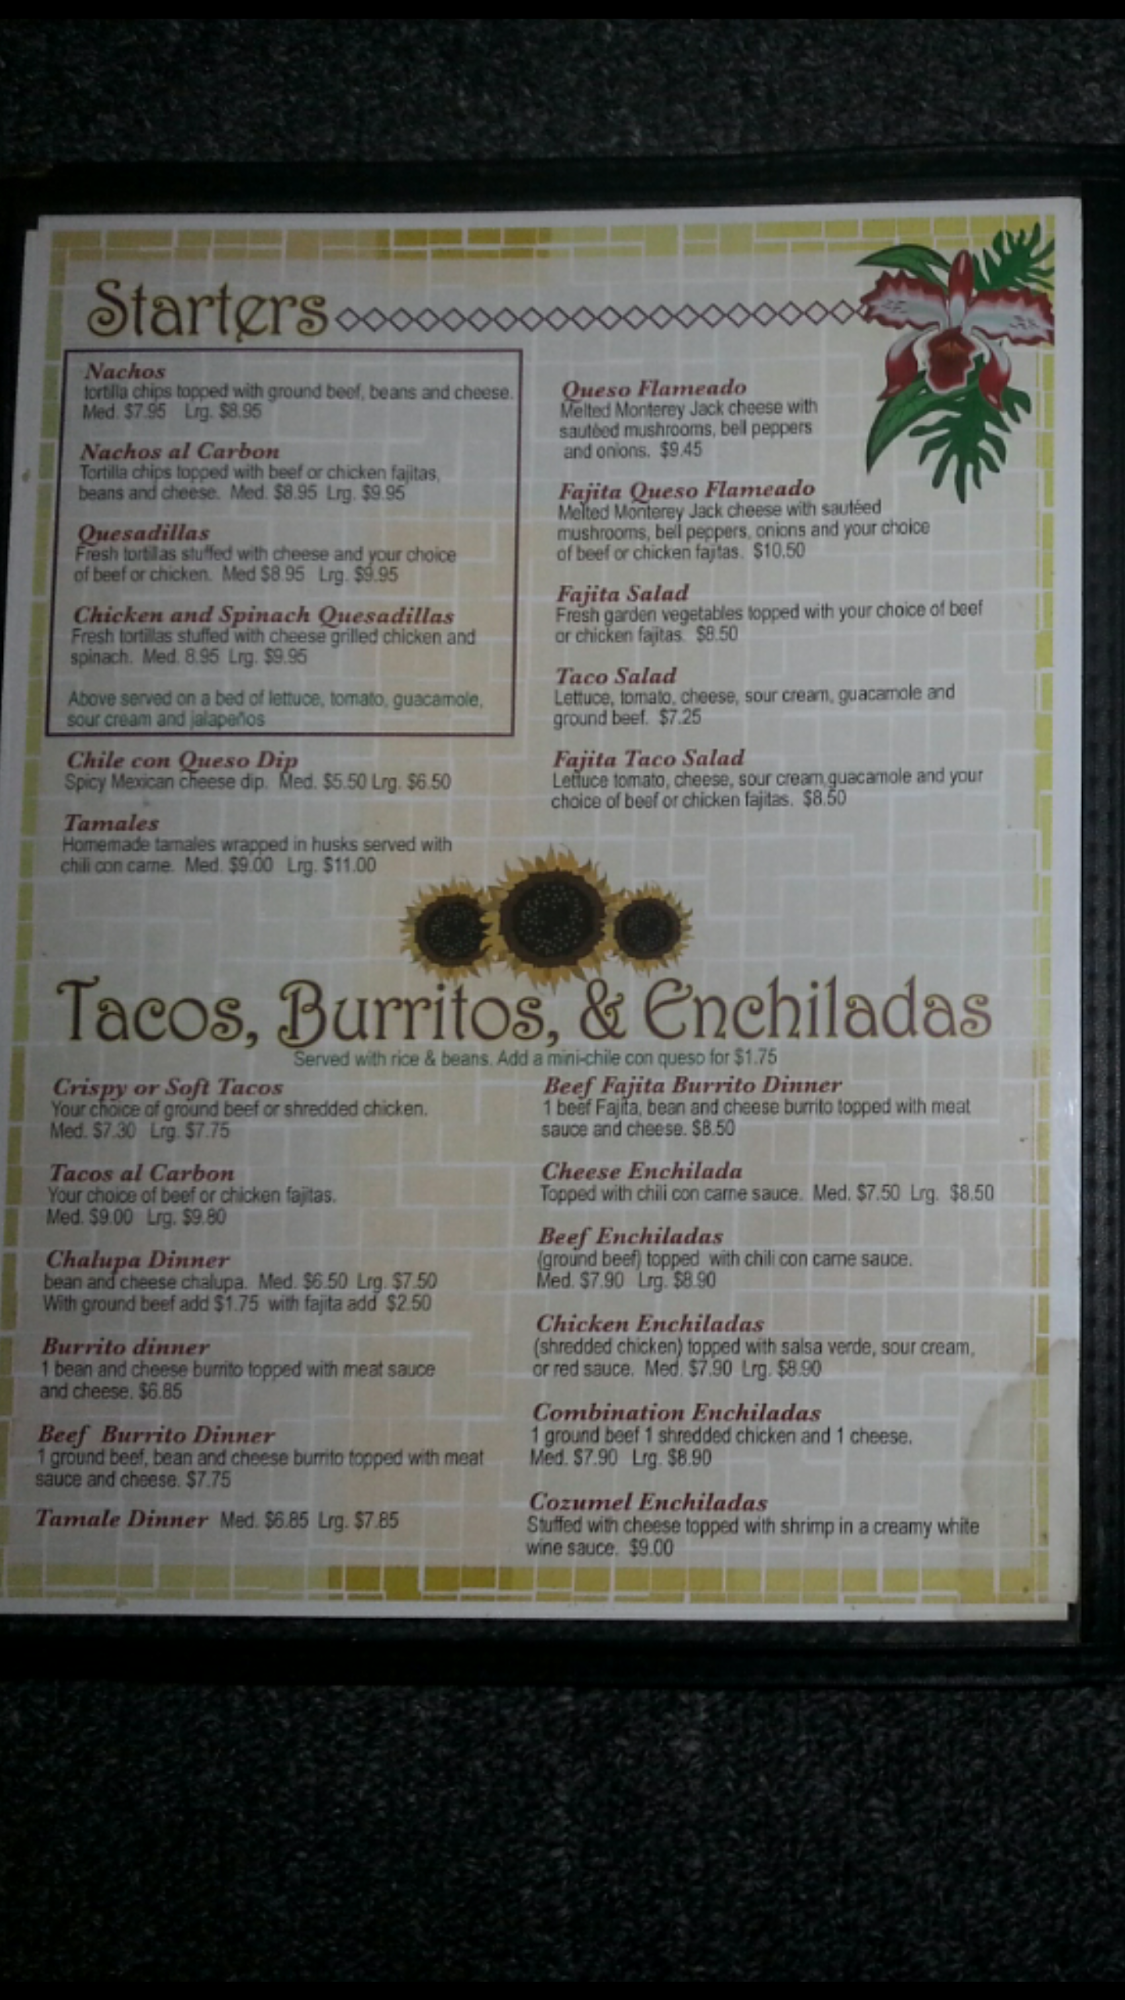 Starters
Nachos
tortilla chips topped with ground beef, beans and cheese.
Med. $7.95 Lrg. $8.95
Nachos al Carbon
Tortilla chips topped with beef or chicken fajitas,
beans and cheese. Med. $8.95 Lrg. $9.95
Quesadillas
Fresh tortillas stuffed with cheese and your choice
of beef or chicken. Med $8.95 Lrg. $9.95
Chicken and Spinach Quesadillas
Fresh tortillas stuffed with cheese grilled chicken and
spinach. Med. 8.95 Lrg. $9.95
Above served on a bed of lettuce, tomato, guacamole,
sour cream and jalapeños
Chile con Queso Dip
Spicy Mexican cheese dip. Med. $5.50 Lrg. $6.50
Tamales
Homemade tamales wrapped in husks served with
chili con carne. Med. $9.00 Lrg. $11.00
Queso Flameado
Melted Monterey Jack cheese with
sautéed mushrooms, bell peppers
and onions. $9.45
Fajita Queso Flameado
Melted Monterey Jack cheese with sautéed
mushrooms, bell peppers, onions and your choice
of beef or chicken fajitas. $10.50
Fajita Salad
Fresh garden vegetables topped with your choice of beef
or chicken fajitas. $8.50
Taco Salad
Lettuce, tomato, cheese, sour cream, guacamole and
ground beef. $7.25
Fajita Taco Salad
Lettuce tomato, cheese, sour cream, guacamole and your
choice of beef or chicken fajitas. $8.50
Tacos, Burritos, & Enchiladas
Served with rice & beans. Add a mini-chile con queso for $1.75
Crispy or Soft Tacos
Your choice of ground beef or shredded chicken.
Med. $7.30 Lrg. $7.75
Tacos al Carbon
Your choice of beef or chicken fajitas.
Med. $9.00 Lrg. $9.80
Chalupa Dinner
bean and cheese chalupa. Med. $6.50 Lrg. $7.50
With ground beef add $1.75 with fajita add $2.50
Burrito dinner
1 bean and cheese burrito topped with meat sauce
and cheese. $6.85
Beef Burrito Dinner
1 ground beef, bean and cheese burrito topped with meat
sauce and cheese. $7.75
Tamale Dinner Med. $6.85 Lrg. $7.85
Beef Fajita Burrito Dinner
1 beef Fajita, bean and cheese burrito topped with meat
sauce and cheese. $8.50
Cheese Enchilada
Topped with chili con carne sauce. Med. $7.50 Lrg. $8.50
Beef Enchiladas
(ground beef) topped with chili con carne sauce.
Med. $7.90 Lrg. $8.90
Chicken Enchiladas
(shredded chicken) topped with salsa verde, sour cream,
or red sauce. Med. $7.90 Lrg. $8.90
Combination Enchiladas
1 ground beef 1 shredded chicken and 1 cheese.
Med. $7.90 Lrg. $8.90
Cozumel Enchiladas
Stuffed with cheese topped with shrimp in a creamy white
wine sauce. $9.00